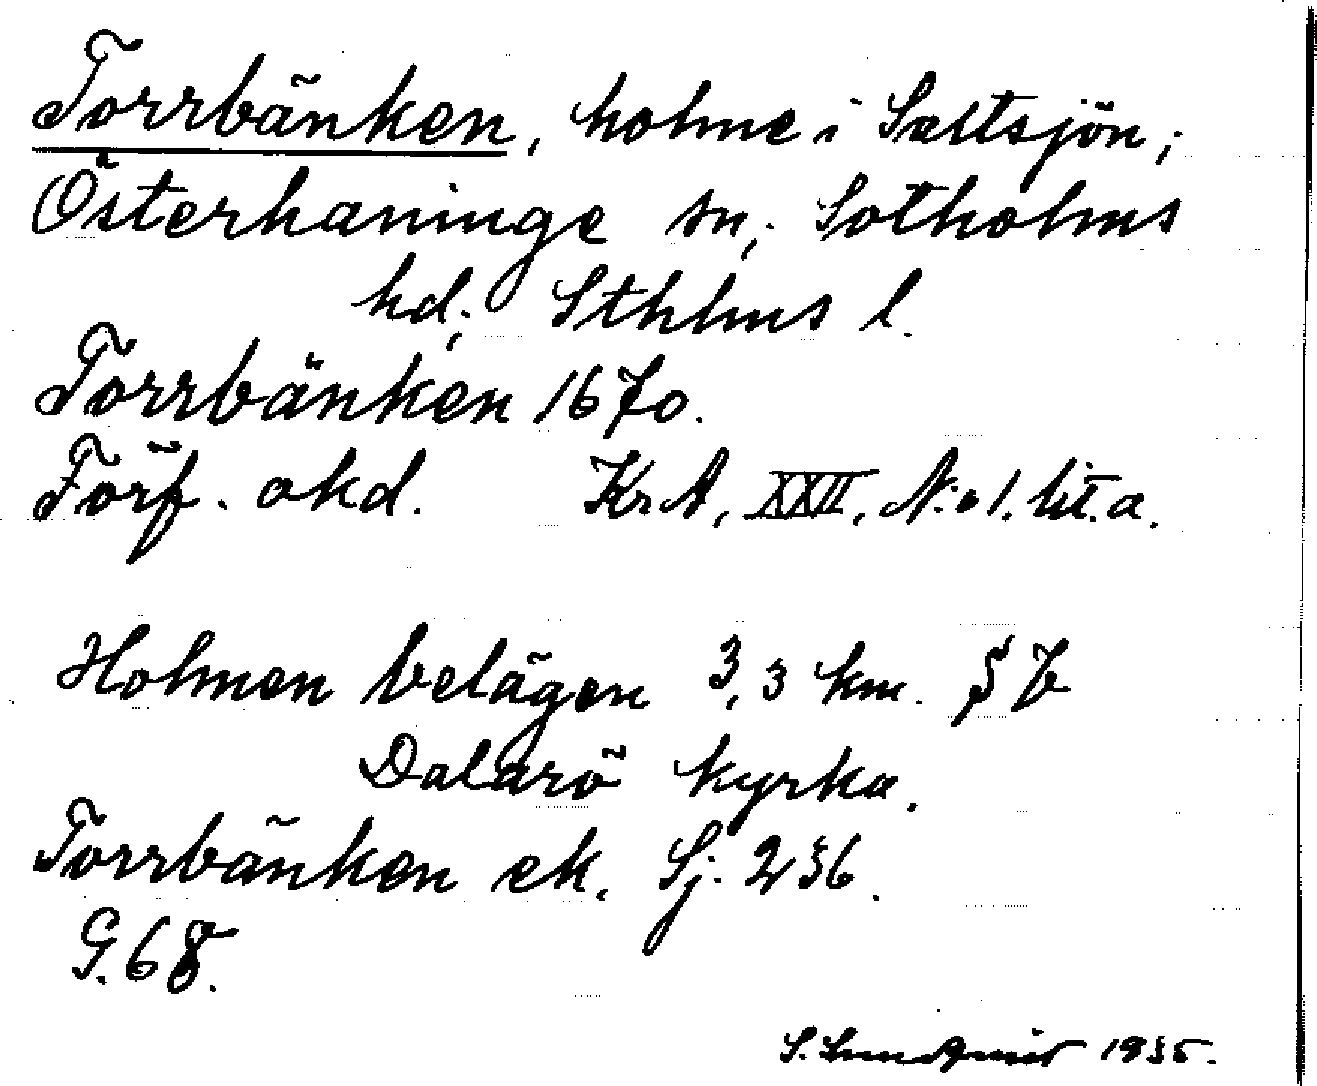 Torrbänken, holme i Saltsjön;
Österhaninge sn; Sotholms
hd; Sthlms l.
Torrbänken 1670.
Förf. okd. KrA, XXII, No 1. lit. a.
Holmen belägen 3,3 km.
Dalarö kyrka.
Torrbänken ek. Sj. 236.
G. 68.
S. Lundqvist 1935.